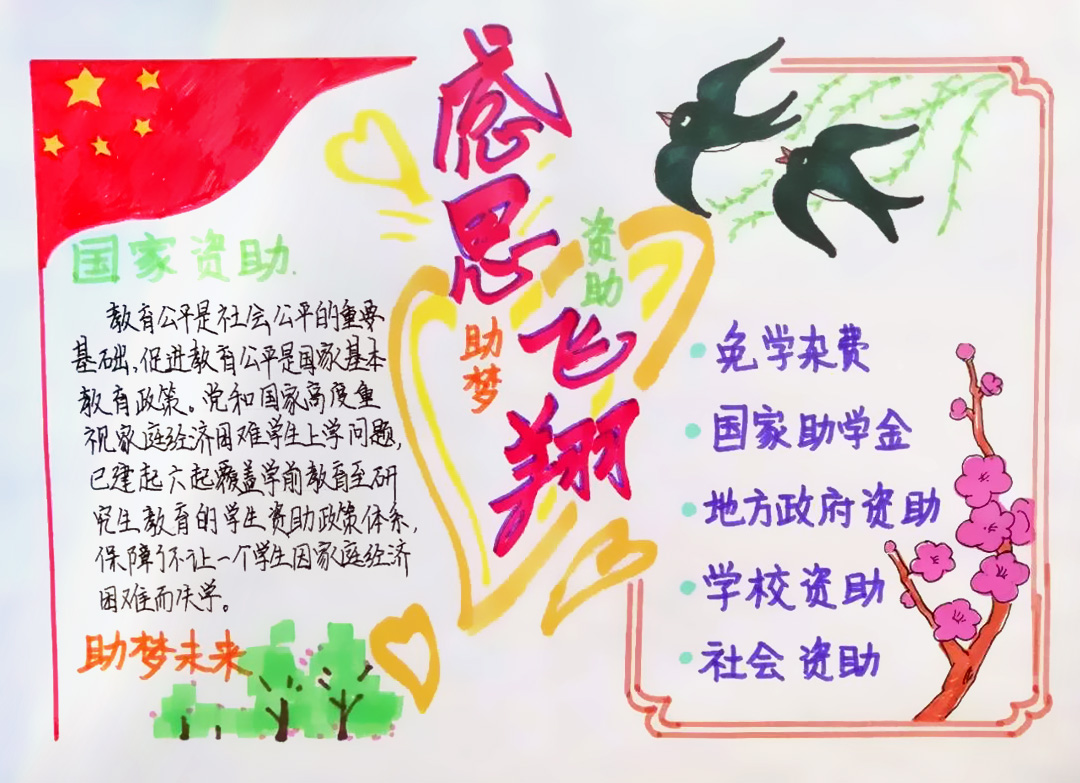 国家资助.
教育公平是社会公平的重要
基础,促进教育公平是国家基本
教育政策。党和国家高度重
视家庭经济困难学生上学问题,
已建起六起覆盖学前教育至研
究生教育的学生资助政策体系,
保障了不让一个学生因家庭经济
困难而失学。
助梦未来
感恩飞翔
资助
助梦
免学杂费
国家助学金
地方政府资助
学校资助
社会资助